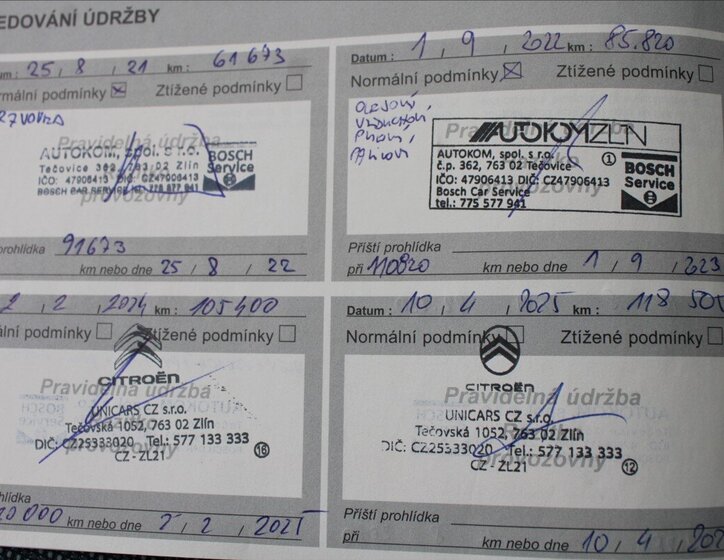 EDOVÁNÍ ÚDRŽBY
um : 25 / 8 / 21 km : 61673
rmální podmínky Ztížené podmínky
Pravidelná údržba
AUTOKOM, spol. s r.o.
Tečovice 362, 763 02 Zlín
IČO: 47906413 DIČ: CZ47906413
BOSCH CAR SERVICE 775 577 941
BOSCH
Service
provozovny
prohlídka 91673
km nebo dne 25 / 8 / 22
Datum : 1 / 9 / 2022 km : 85.820
Normální podmínky Ztížené podmínky
Olejový,
Pravidelná údržba
AUTOKOMZLÍN
AUTOKOM, spol. s r.o.
č.p. 362, 763 02 Tečovice
IČO: 47906413 DIČ: CZ47906413
Bosch Car Service
tel.: 775 577 941
1
BOSCH
Service
Příští prohlídka
při 110820 km nebo dne 1 / 9 / 223
2 / 2 / 2024 km : 105400
ální podmínky Ztížené podmínky
Pravidelná údržba
CITROËN
UNICARS CZ s.r.o.
Tečovská 1052, 763 02 Zlín
DIČ: CZ25333020 Tel.: 577 133 333
CZ - ZL21
16
provozovny
ohlídka
km nebo dne 2 / 2 / 2025
Datum : 10 / 4 / 2025 km : 118 505
Normální podmínky Ztížené podmínky
Pravidelná údržba
CITROËN
UNICARS CZ s.r.o.
Tečovská 1052, 763 02 Zlín
DIČ: CZ25333020 Tel.: 577 133 333
CZ - ZL21
12
provozovny
Příští prohlídka
při km nebo dne 10 / 4 / 202